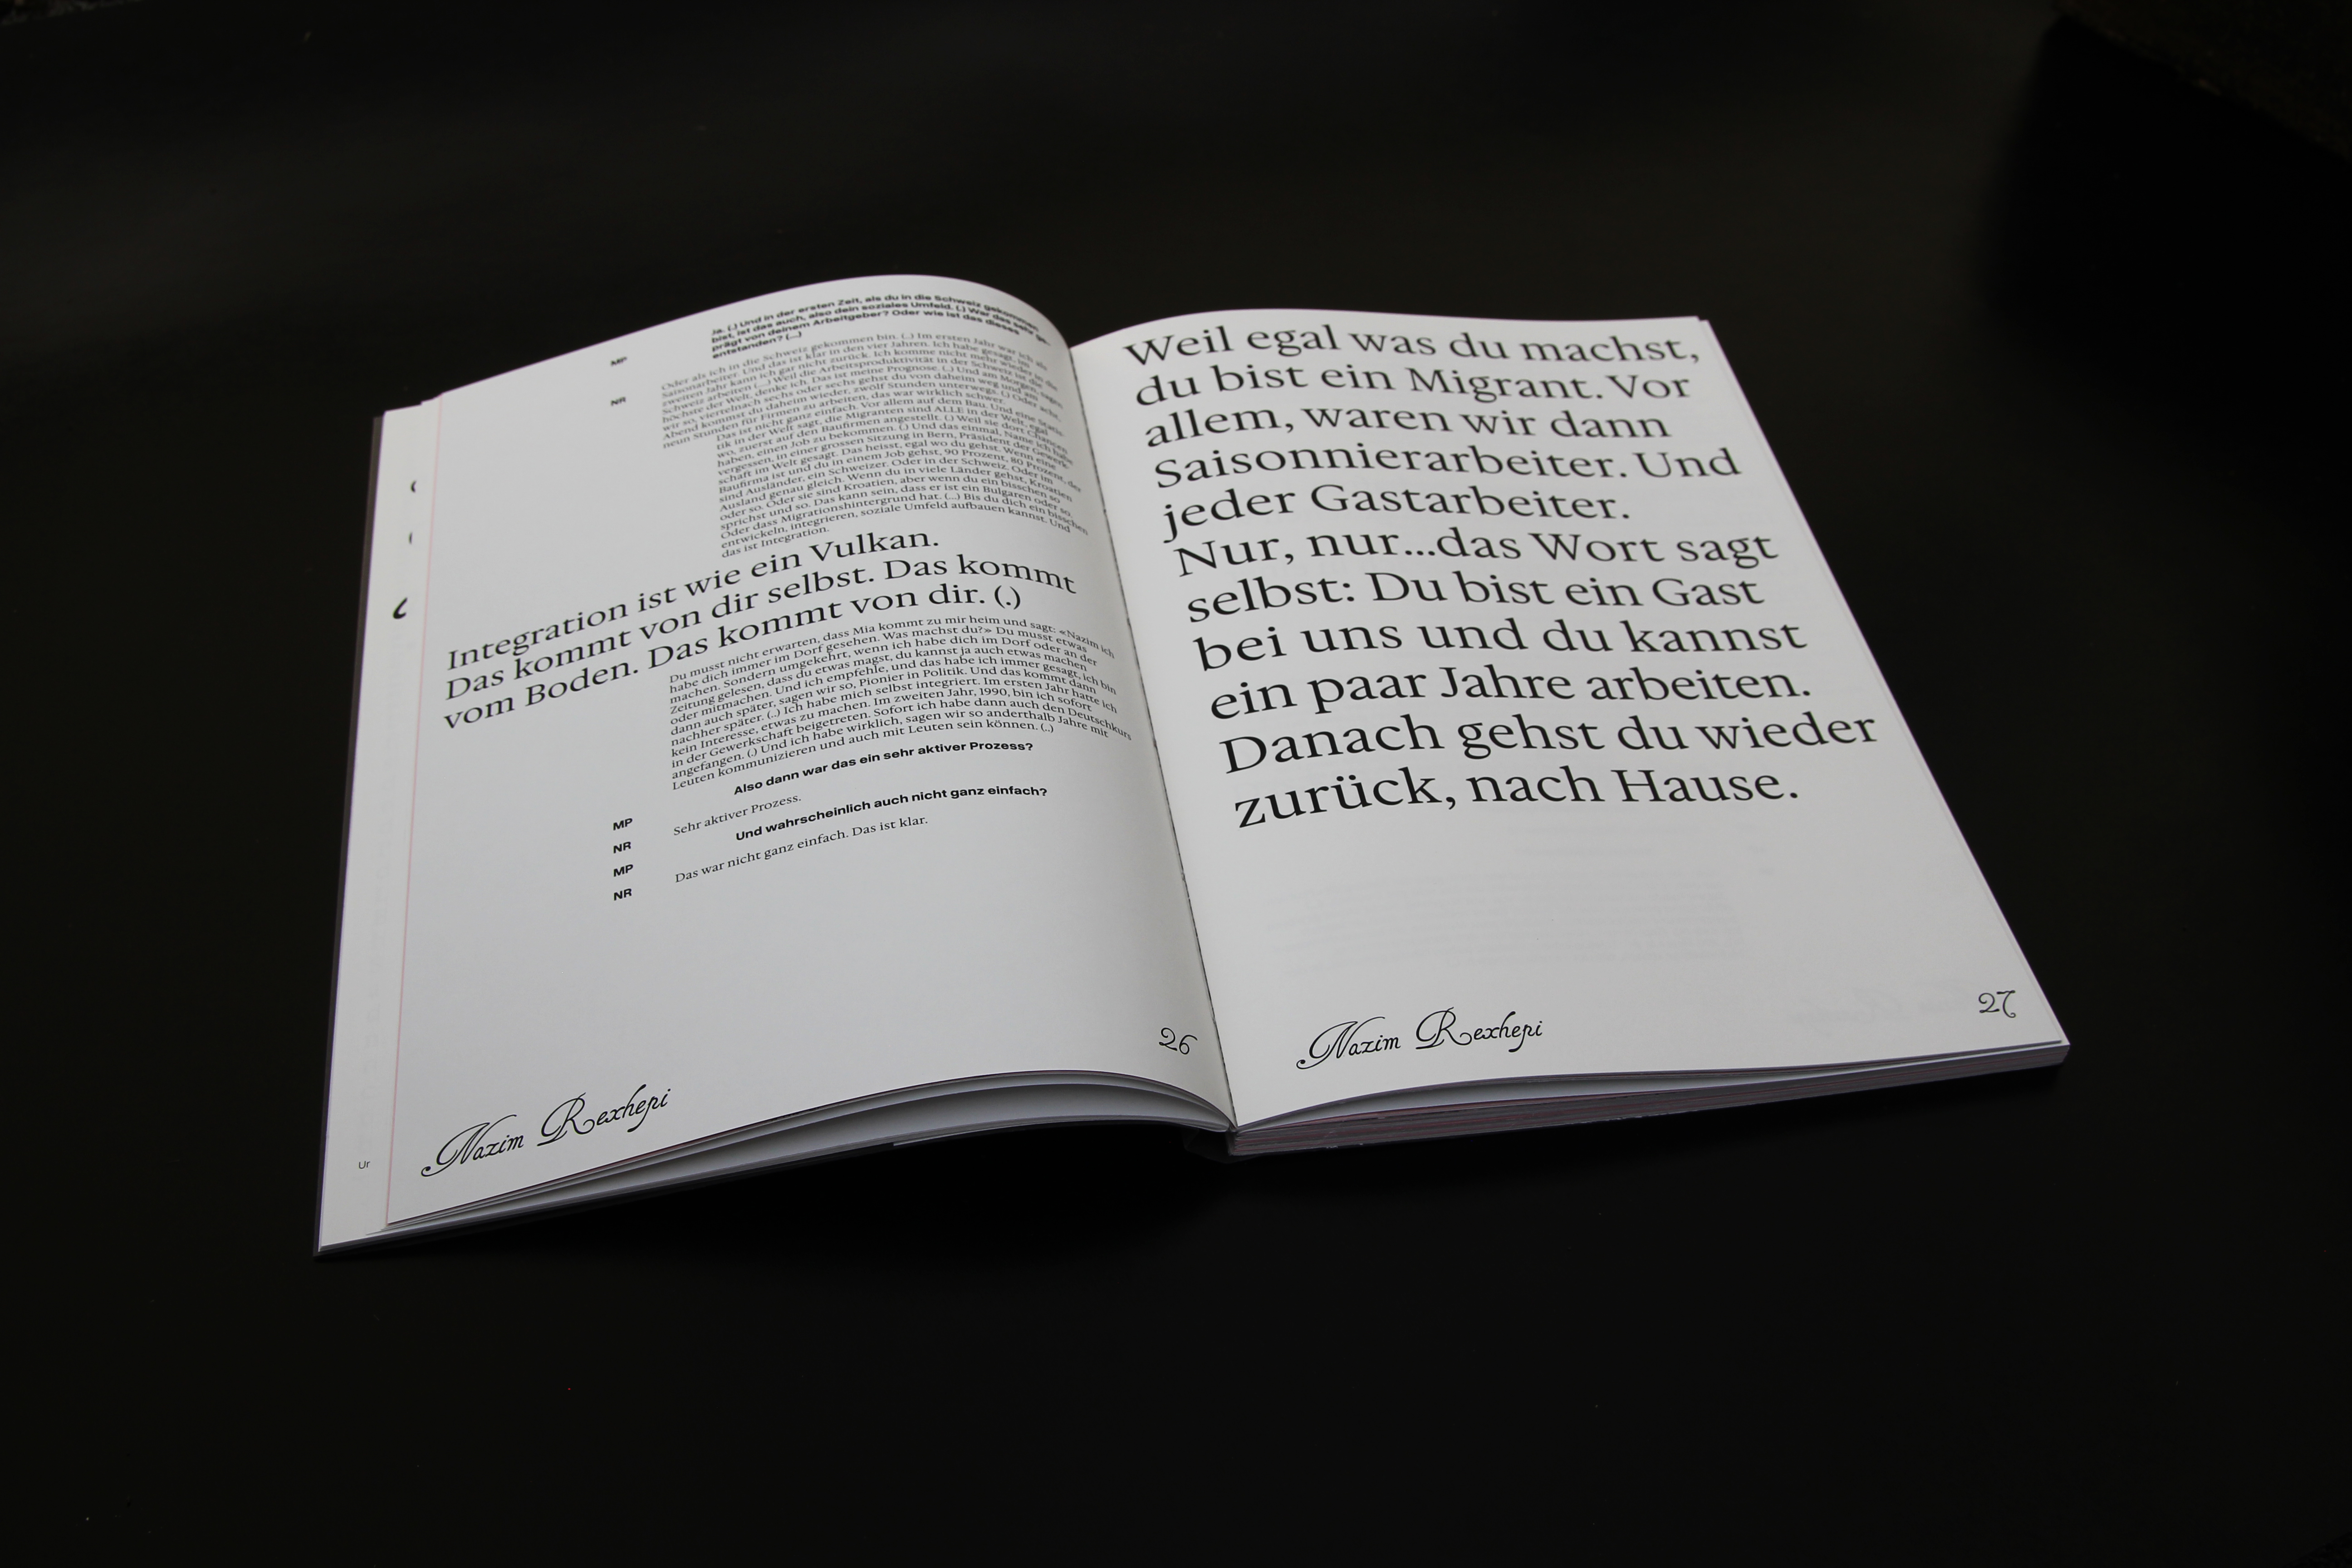 MP
Ja. (.) Und in der ersten Zeit, als du in die Schweiz gekommen
bist, ist das auch, also dein soziales Umfeld. (.) War das sehr ge-
prägt von deinem Arbeitgeber? Oder wie ist das dieses
entstanden? (...)
NR
Oder als ich in die Schweiz gekommen bin. (..) Im ersten Jahr war ich als
Saisonarbeiter. Und das ist klar in den vier Jahren. Ich habe gesagt, im
zweiten Jahr kann ich gar nicht zurück. Ich komme nicht mehr wieder in die
Schweiz arbeiten (....) Weil die Arbeitsproduktivität in der Schweiz ist die
höchste der Welt, denke ich. Das ist meine Prognose. (..) Und am Morgen, sagen
wir so, viertelnach sechs oder sechs gehst du von daheim weg und am
Abend kommst du daheim wieder, zwölf Stunden unterwegs. (.) Oder acht,
neun Stunden für Firmen zu arbeiten, das war wirklich schwer.
Das ist nicht ganz einfach. Vor allem auf dem Bau. Und eine Statis-
tik in der Welt sagt, die Migranten sind ALLE in der Welt, egal
wo, zuerst auf den Baufirmen angestellt. (.) Weil sie dort Chancen
haben, einen Job zu bekommen. (.) Und das einmal, Name ich habe
vergessen, in einer grossen Sitzung in Bern, Präsident der Gewerk-
schaft im Welt gesagt. Das heisst, egal wo du gehst. Wenn eine
Baufirma ist und du in einem Job gehst, 90 Prozent, 80 Prozent, der
sind Ausländer, ein Schweizer. Oder in der Schweiz. Oder im
Ausland genau gleich. Wenn du in viele Länder gehst, Kroatien
oder so. Oder sie sind Kroatien, aber wenn du ein bisschen so
sprichst und so. Das kann sein, dass er ist ein Bulgaren oder so.
Oder dass Migrationshintergrund hat. (...) Bis du dich ein bisschen
entwickeln, integrieren, soziale Umfeld aufbauen kannst. Und
das ist Integration.
Integration ist wie ein Vulkan.
Das kommt von dir selbst. Das kommt
vom Boden. Das kommt von dir. (.)
Du musst nicht erwarten, dass Mia kommt zu mir heim und sagt: «Nazim ich
habe dich immer im Dorf gesehen. Was machst du?» Du musst etwas
machen. Sondern umgekehrt, wenn ich habe dich im Dorf oder an der
Zeitung gelesen, dass du etwas magst, du kannst ja auch etwas machen
oder mitmachen. Und ich empfehle, und das habe ich immer gesagt, ich bin
dann auch später, sagen wir so, Pionier in Politik. Und das kommt dann
nachher später. (..) Ich habe mich selbst integriert. Im ersten Jahr hatte ich
kein Interesse, etwas zu machen. Im zweiten Jahr, 1990, bin ich sofort
in der Gewerkschaft beigetreten. Sofort ich habe dann auch den Deutschkurs
angefangen. (.) Und ich habe wirklich, sagen wir so anderthalb Jahre mit
Leuten kommunizieren und auch mit Leuten sein können. (..)
MP
Also dann war das ein sehr aktiver Prozess?
NR
Sehr aktiver Prozess.
MP
Und wahrscheinlich auch nicht ganz einfach?
NR
Das war nicht ganz einfach. Das ist klar.
Ur
Nazim Rexhepi
26
Weil egal was du machst,
du bist ein Migrant. Vor
allem, waren wir dann
Saisonnierarbeiter. Und
jeder Gastarbeiter.
Nur, nur...das Wort sagt
selbst: Du bist ein Gast
bei uns und du kannst
ein paar Jahre arbeiten.
Danach gehst du wieder
zurück, nach Hause.
Nazim Rexhepi
27